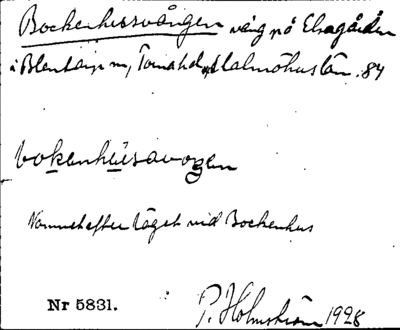 Bockenhusvången vång på Elsagården
i Blentarp sn, Torna hd, Malmöhus län. 84
bokenhüsavoŋen
Namnet efter läget vid Bockenhus
Nr 5831.
P. Holmström 1928